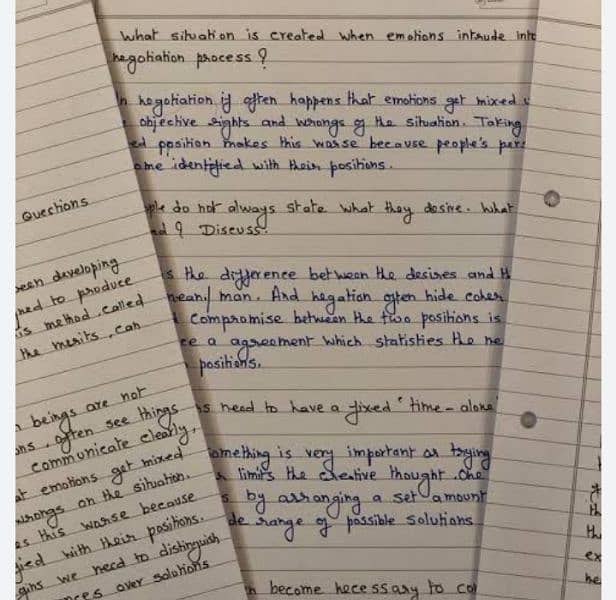 What situation is created when emotions intrude into
negotiation process?
In negotiation it often happens that emotions get mixed
objective rights and wrongs of the situation. Taking
position makes this worse because people's
identified with their positions.
do not always state what they desire. What
? Discuss.
the difference between the desires and
mean/ man. And negation often hide
Compromise between the two positions is
a agreement which statisties the
positions.
need to have a fixed "time - alone
something is very important as trying
limits the creative thought. One
by arranging a set amount
range of possible solutions
become necessary to
Questions
been developing
to produce
method, called
the merits, can
beings are not
, often see things
communicate clearly,
emotions get mixed
wrongs on the situation.
this worse because
with their positions.
we need to distinguish
over solutions